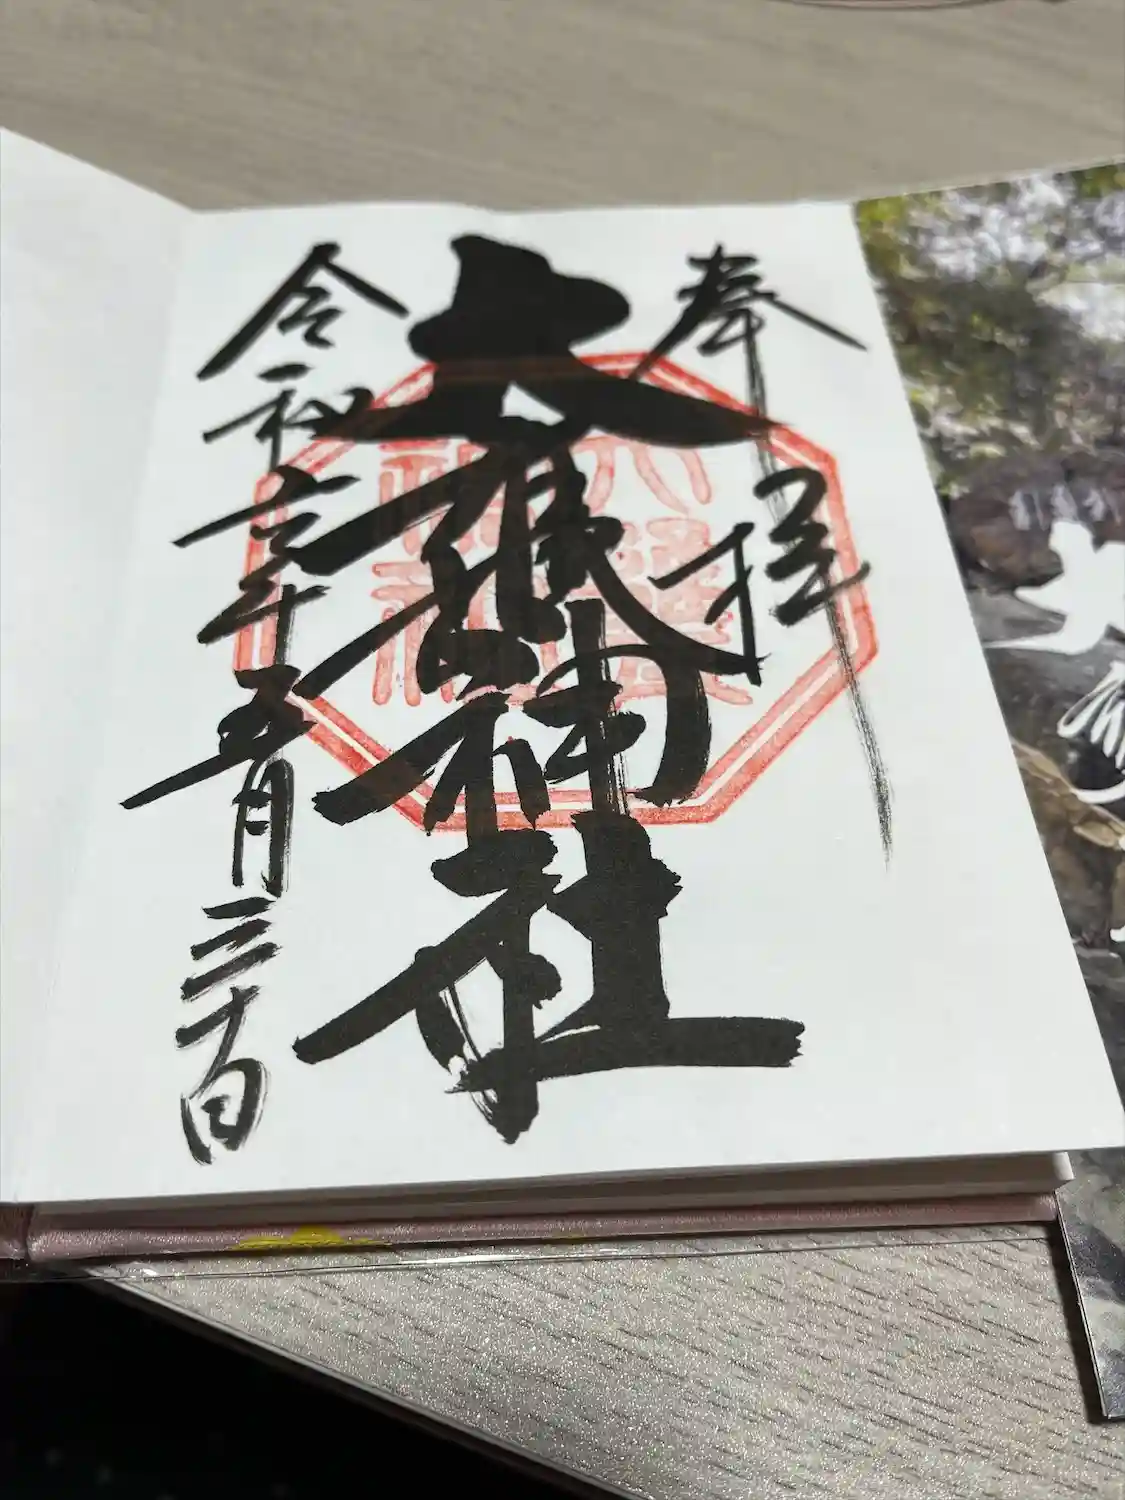 奉拝
大甕神社
令和六年五月三十日